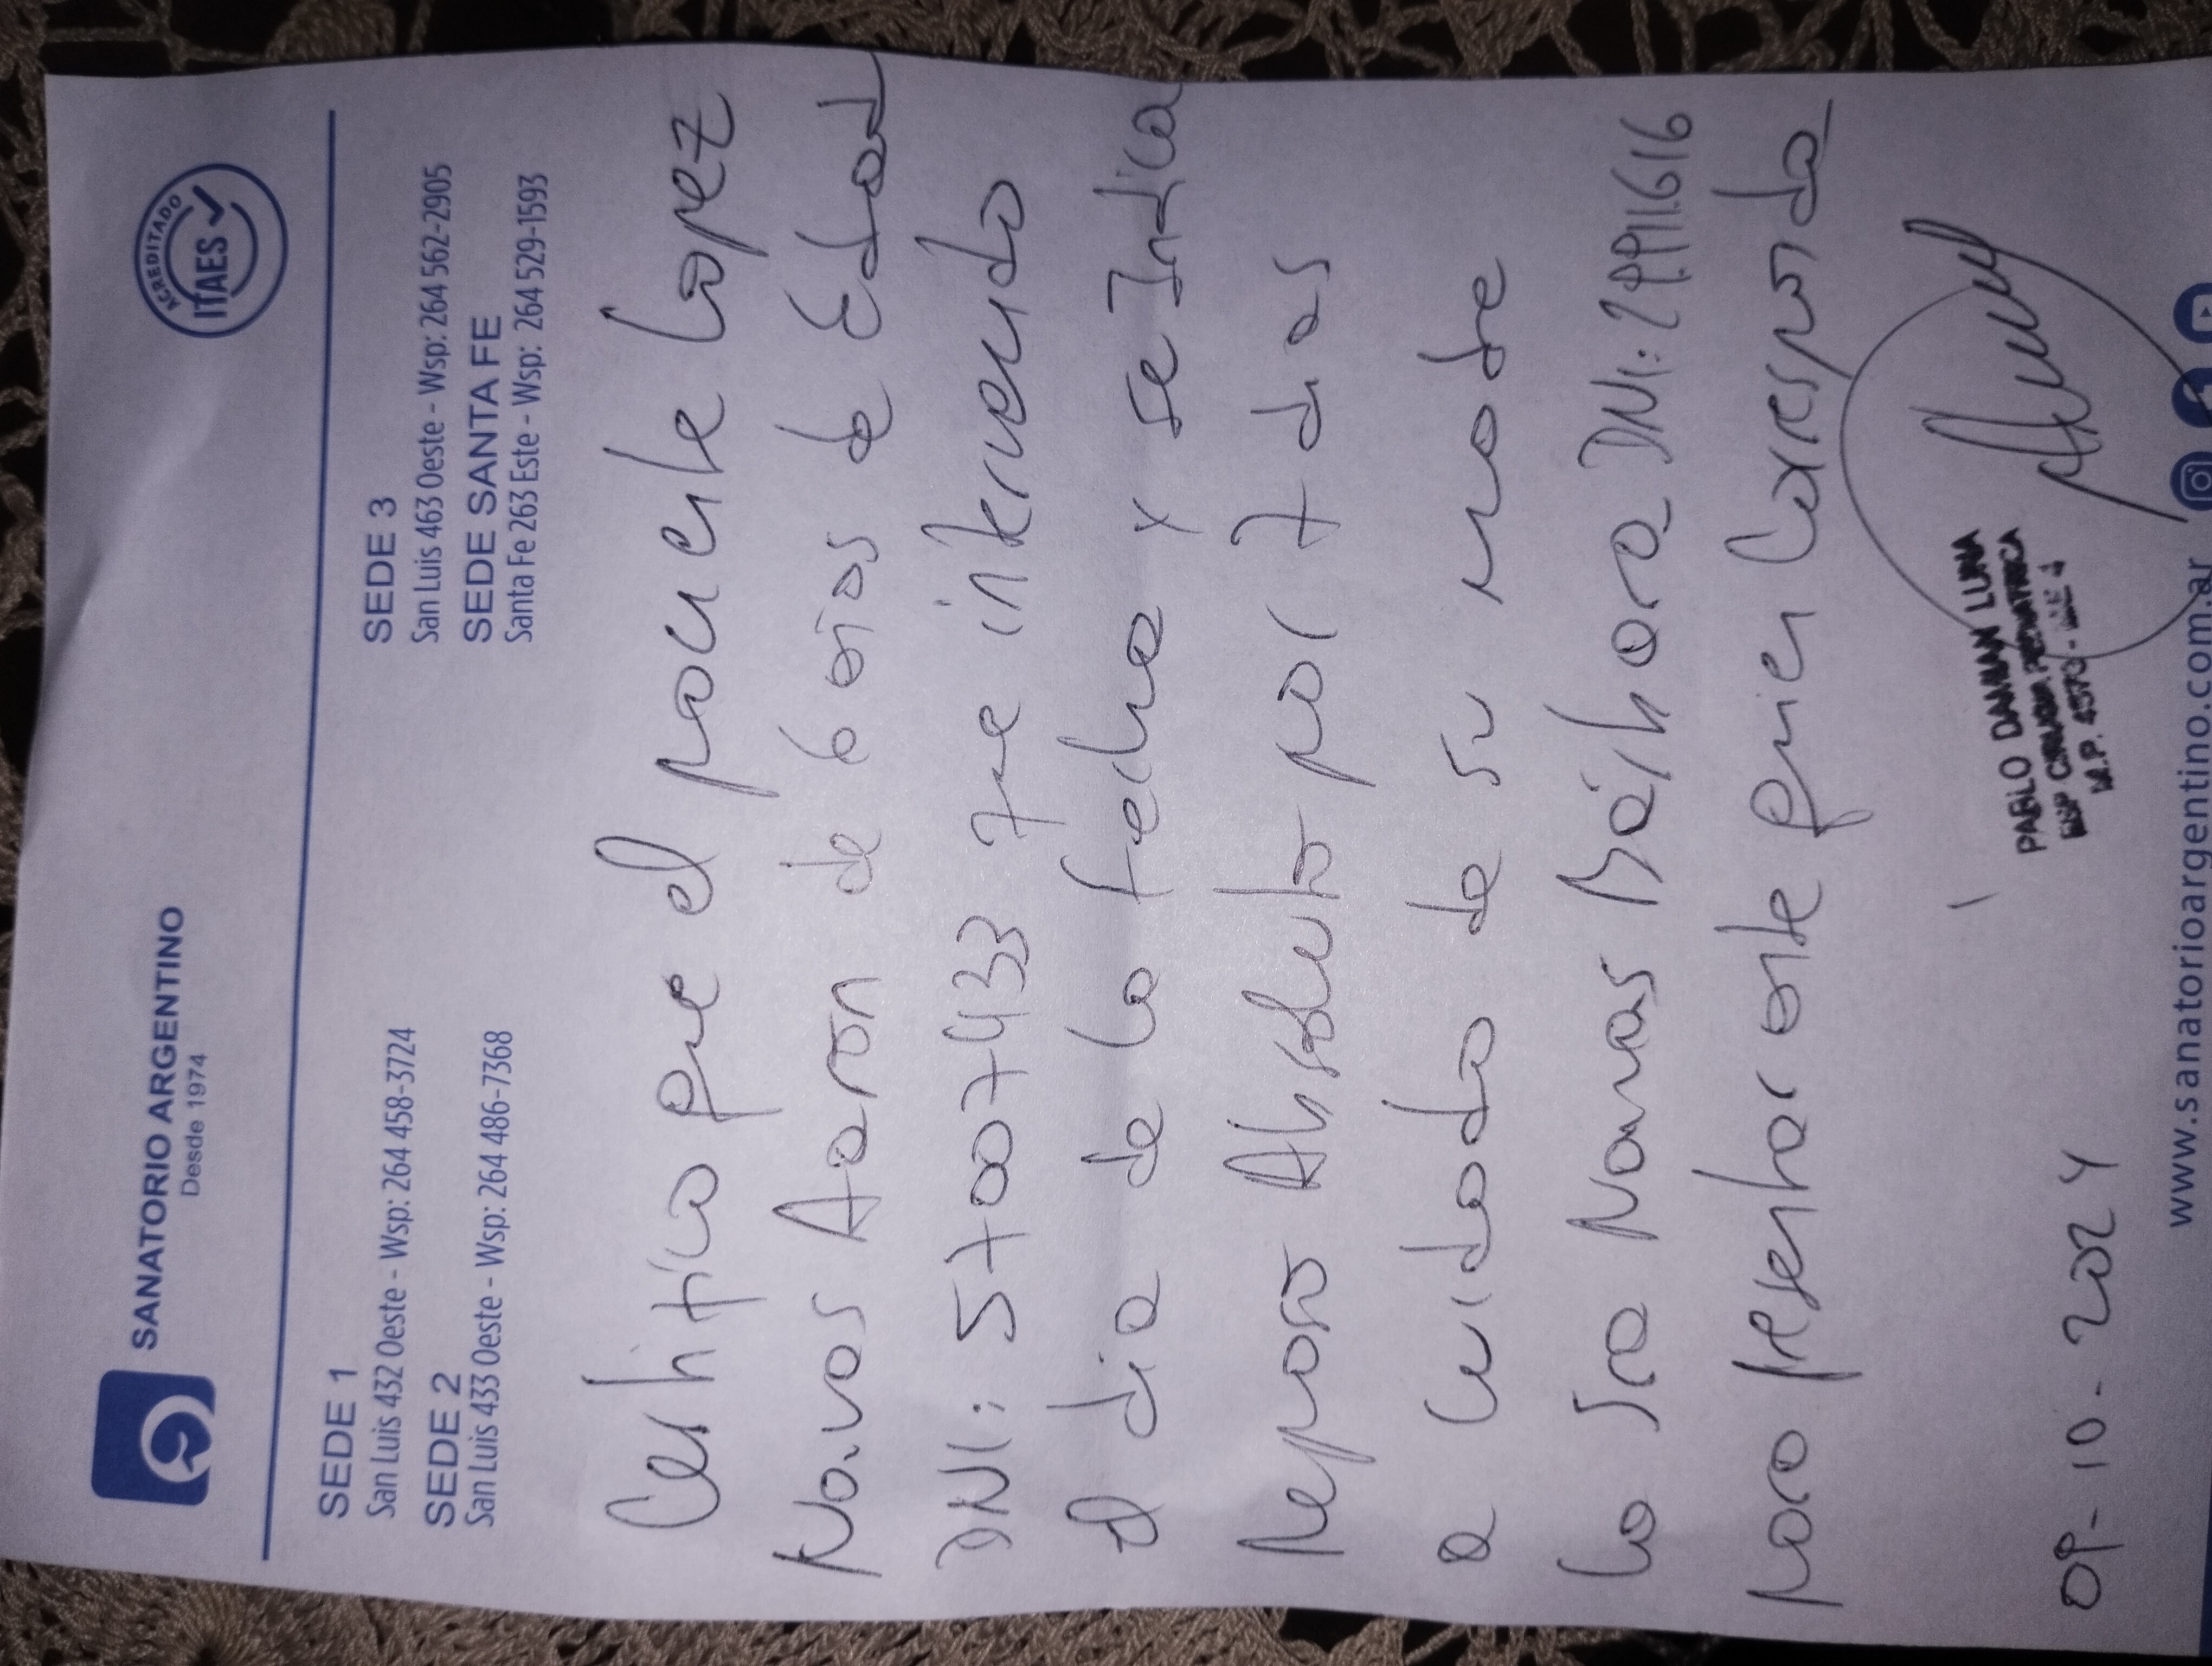 SANATORIO ARGENTINO
Desde 1974
ACREDITADO
ITAES
SEDE 1
San Luis 432 Oeste - Wsp: 264 458-3724
SEDE 2
San Luis 433 Oeste - Wsp: 264 486-7368
SEDE 3
San Luis 463 Oeste - Wsp: 264 562-2905
SEDE SANTA FE
Santa Fe 263 Este - Wsp: 264 529-1593
Certifico que el paciente Lopez
Navas Aaron de 6 años de Edad
DNI: 57007433 fue intervenido
el dia de la fecha y se Indica
Reposo Absoluto por 7 dias
a cuidado de su madre
la Sra Navas DNI: 29911616
para presentar ante quien Corresponda
PABLO DAMIAN LUNA
ESP CIRUGIA PEDIATRICA
M.P. 4570
09-10-2024
www.sanatorioargentino.com.ar